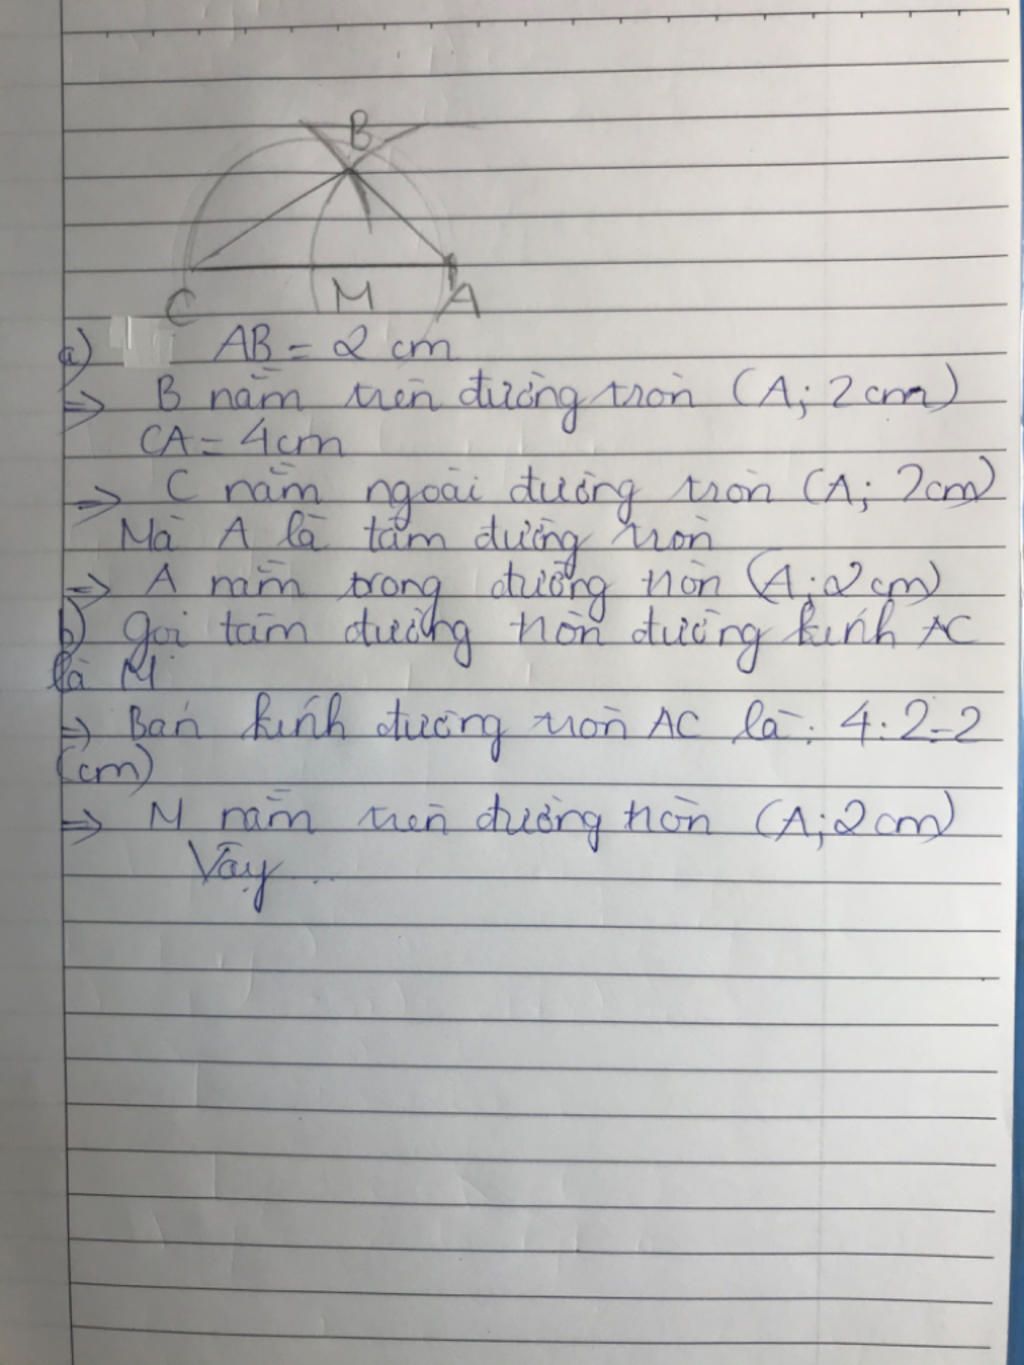 B
C M A
a) AB = 2 cm
=> B nằm trên đường tròn (A; 2cm)
CA = 4cm
=> C nằm ngoài đường tròn (A; 2cm)
Mà A là tâm đường tròn
=> A nằm trong đường tròn (A; 2cm)
b) gọi tâm đường tròn đường kính AC
là M
=> Bán kính đường tròn AC là: 4:2=2
(cm)
=> M nằm trên đường tròn (A; 2cm)
Vậy ...